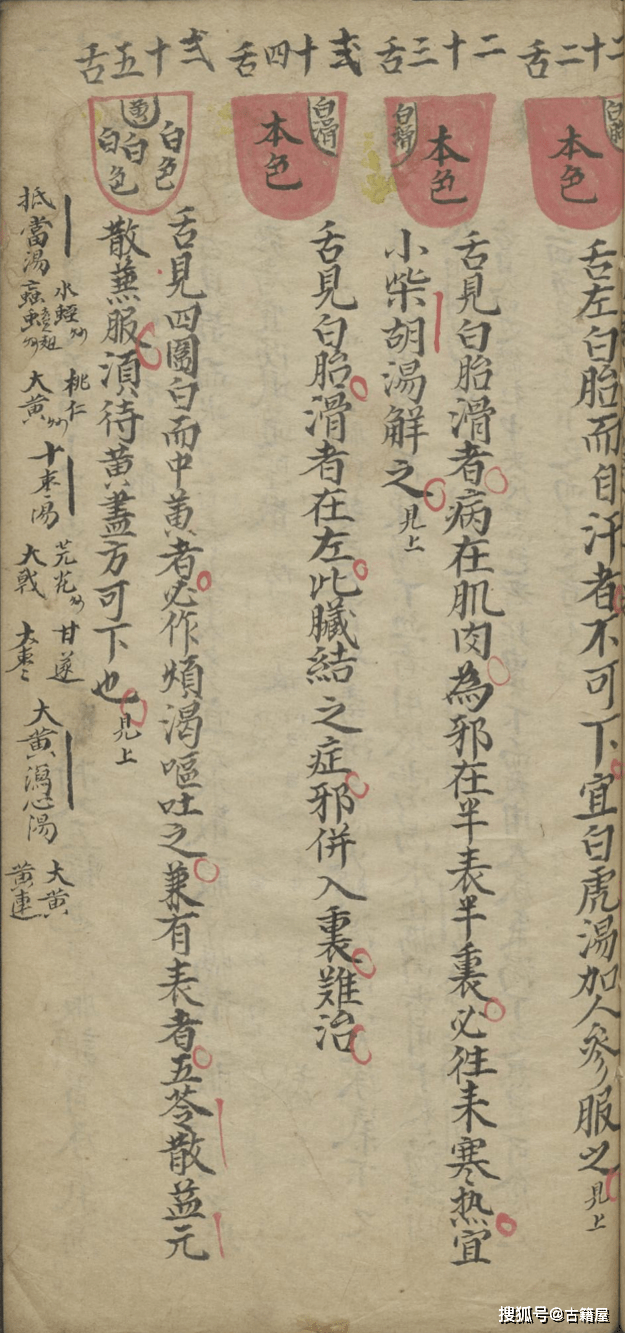 二十二舌
白滑
本色
舌左白胎而自汗者不可下宜白虎湯加人參服之見上
二十三舌
白滑
本色
舌見白胎滑者病在肌肉為邪在半表半裏必往来寒热宜
小柴胡湯解之見上
弍十四舌
白滑
本色
舌見白胎滑者在左此臟結之症邪併入裏難治
弍十五舌
黄
白色
白
白色
舌見四圍白而中黄者必作煩渴嘔吐之兼有表者五苓散益元
散兼服須待黄盡方可下也見上
抵當湯
水蛭
虻虫
桃仁
大黄
十枣湯
芫花
大戟
甘遂
大枣
大黄瀉心湯
大黄
黄連
搜狐号@古籍屋